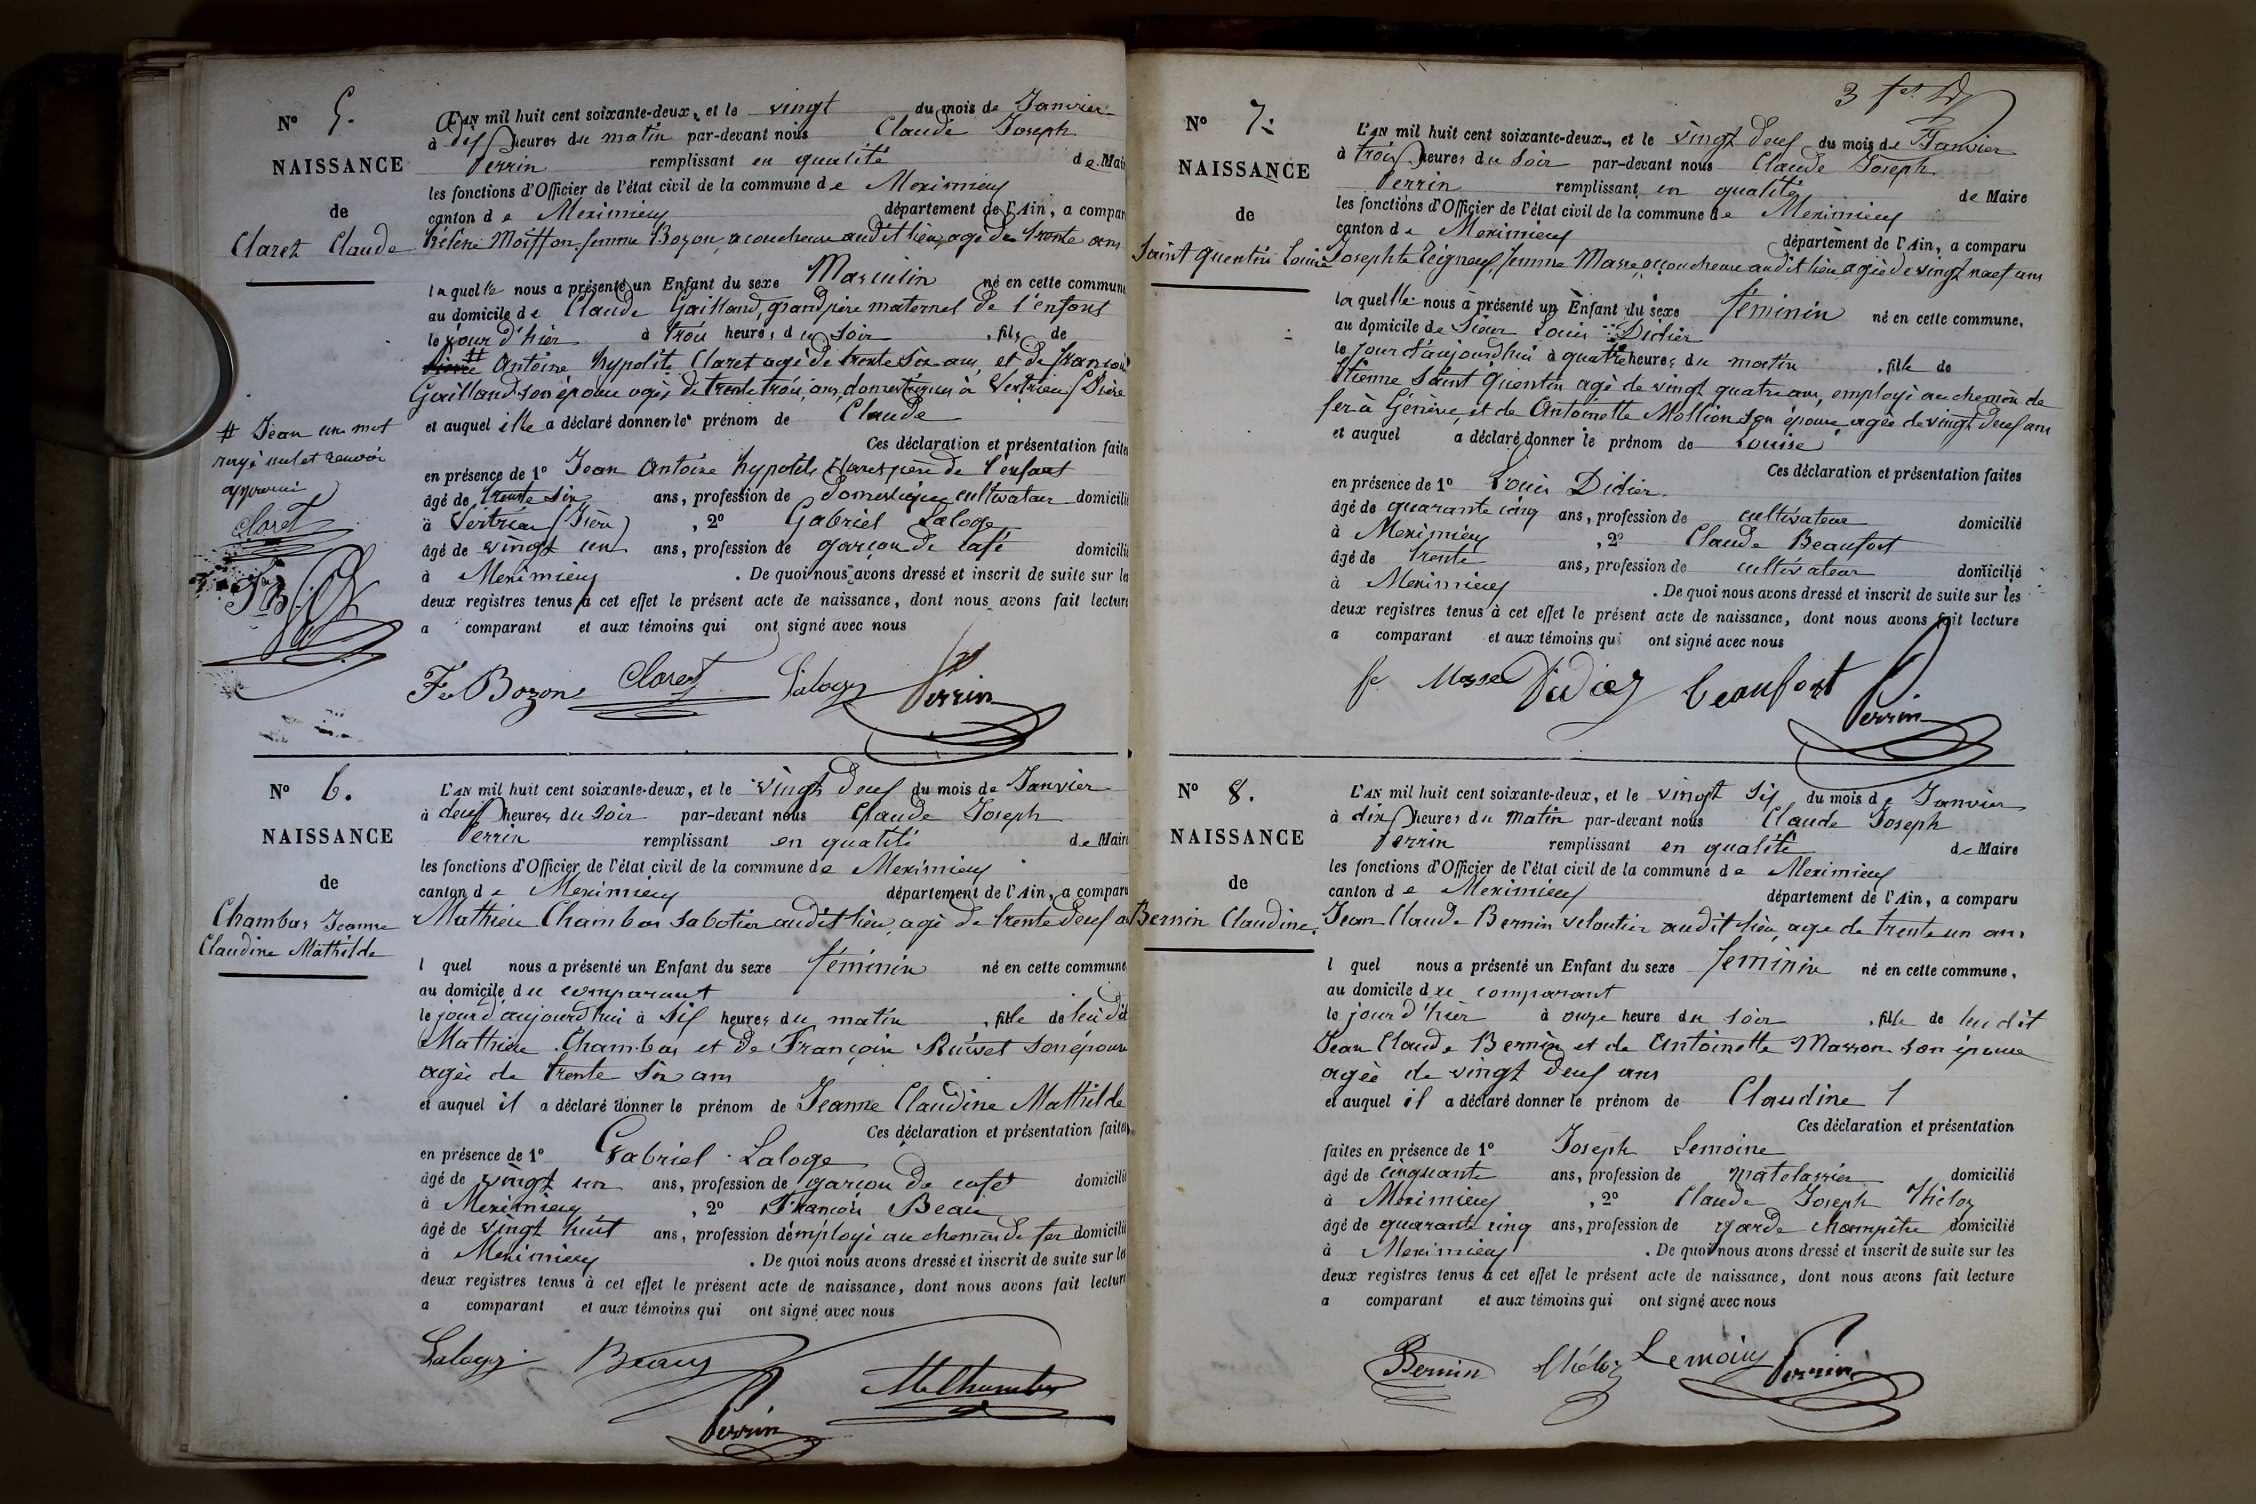 N° 5.
NAISSANCE
de
Claret Claude
L'AN mil huit cent soixante-deux, et le vingt du mois de Janvier
à dix heures du matin par-devant nous Claude Joseph
Perrin remplissant en qualité de Mair
les fonctions d'Officier de l'état civil de la commune de Meximieux
canton de Meximieux département de l'Ain, a compar
Hélène Moiffon, femme Bozon, accoucheuse audit lieu, agée de trente ans
laquelle nous a présenté un Enfant du sexe Masculin né en cette commune
au domicile de Claude Gailland, grand père maternel de l'enfant
le jour d'hier à trois heures du soir , fils de
# Antoine hypolite Claret agé de trente six ans, et de François
Gailland son épouse agée de trente trois ans, domestiques à Vertrieu (Isère
et auquel elle a déclaré donner le prénom de Claude
Ces déclaration et présentation faites
en présence de 1° Jean Antoine hypolite Claret père de l'enfant
âgé de trente six ans, profession de domestique cultivateur domicilié
à Vertrieu (Isère) , 2° Gabriel Laloge
âgé de vingt un ans, profession de garçon de café domicilié
à Meximieux . De quoi nous avons dressé et inscrit de suite sur les
deux registres tenus à cet effet le présent acte de naissance, dont nous avons fait lecture
a comparant et aux témoins qui ont signé avec nous
# Jean un mot
rayé nul et renvoi
approuvé
Claret
Fe Bozon Claret Laloge Perrin
N° 6.
NAISSANCE
de
Chambas Jeanne
Claudine Mathilde
L'AN mil huit cent soixante-deux, et le vingt deux du mois de Janvier
à deux heures du soir par-devant nous Claude Joseph
Perrin remplissant en qualité de Maire
les fonctions d'Officier de l'état civil de la commune de Meximieux
canton de Meximieux département de l'Ain, a comparu
Mathieu Chambas sabotier audit lieu, agé de trente deux a
l quel nous a présenté un Enfant du sexe féminin né en cette commune
au domicile du comparant
le jour d'aujourd'hui à six heures du matin , fille de lui dit
Mathieu Chambas et de Françoise Ruisset son épouse
agée de trente six ans
et auquel il a déclaré donner le prénom de Jeanne Claudine Mathilde
Ces déclaration et présentation faites
en présence de 1° Gabriel Laloge
âgé de vingt un ans, profession de garçon de café domicilié
à Meximieux , 2° François Beau
âgé de vingt huit ans, profession d'employé au chemin de fer domicilié
à Meximieux . De quoi nous avons dressé et inscrit de suite sur les
deux registres tenus à cet effet le présent acte de naissance, dont nous avons fait lecture
a comparant et aux témoins qui ont signé avec nous
Laloge Beau
Mth Chambas
Perrin
3
N° 7.
NAISSANCE
de
Saint Quentin Louise
L'AN mil huit cent soixante-deux, et le vingt deux du mois de Janvier
à trois heures du soir par-devant nous Claude Joseph
Perrin remplissant en qualité de Maire
les fonctions d'Officier de l'état civil de la commune de Meximieux
canton de Meximieux département de l'Ain, a comparu
Josephte Peigneux, femme Masse, accoucheuse audit lieu agée de vingt neuf ans
laquelle nous a présenté un Enfant du sexe féminin né en cette commune,
au domicile de Sieur Louis Didier
le jour d'aujourd'hui à quatre heures du matin , fille de
Etienne Saint Quentin agé de vingt quatre ans, employé au chemin de
fer à Génève, et de Antoinette Mollion son épouse agée de vingt deux ans
et auquel a déclaré donner le prénom de Louise
Ces déclaration et présentation faites
en présence de 1° Louis Didier
âgé de quarante cinq ans, profession de cultivateur domicilié
à Meximieux , 2° Claude Beaufort
âgé de trente ans, profession de cultivateur domicilié
à Meximieux . De quoi nous avons dressé et inscrit de suite sur les
deux registres tenus à cet effet le présent acte de naissance, dont nous avons fait lecture
a comparant et aux témoins qui ont signé avec nous
fe Masse Didier beaufort Perrin
N° 8.
NAISSANCE
de
Bernin Claudine
L'AN mil huit cent soixante-deux, et le vingt six du mois de Janvier
à dix heures du matin par-devant nous Claude Joseph
Perrin remplissant en qualité de Maire
les fonctions d'Officier de l'état civil de la commune de Meximieux
canton de Meximieux département de l'Ain, a comparu
Jean Claude Bernin veloutier audit lieu, age de trente un ans
l quel nous a présenté un Enfant du sexe feminin né en cette commune,
au domicile du comparant
le jour d'hier à onze heure du soir , fille de lui dit
Jean Claude Bernin et de Antoinette Masson son épouse
agée de vingt deux ans
et auquel il a déclaré donner le prénom de Claudine
Ces déclaration et présentation
faites en présence de 1° Joseph Lemoine
âgé de cinquante ans, profession de matelassier domicilié
à Meximieux , 2° Claude Joseph Théloz
âgé de quarante cinq ans, profession de garde champêtre domicilié
à Meximieux . De quoi nous avons dressé et inscrit de suite sur les
deux registres tenus à cet effet le présent acte de naissance, dont nous avons fait lecture
a comparant et aux témoins qui ont signé avec nous
Bernin théloz Lemoine Perrin